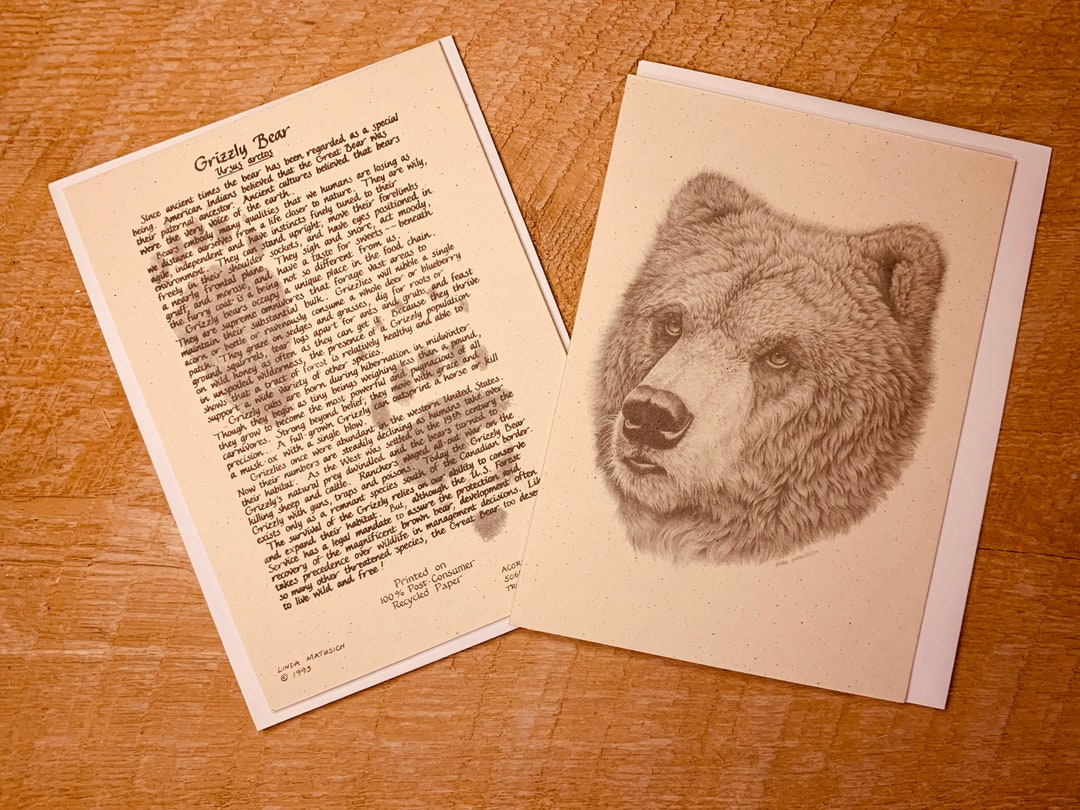 Grizzly Bear
Ursus arctos
Since ancient times the bear has been regarded as a special
being. American Indians believed that the Great Bear was
their paternal ancestor. Ancient cultures believed that bears
were the very voice of the earth.
Bears embody many qualities that we humans are losing as
we distance ourselves from a life closer to nature. They are wily,
agile, independent and have instincts finely tuned to their
environment. They can stand upright, move their forelimbs
freely in their shoulder sockets, and have eyes positioned in
a nearly frontal plane. They sigh and snore, act moody,
gruff and morose, and have a taste for sweets — beneath
the furry coat is a being not so different from us.
Grizzly bears occupy a unique place in the food chain.
They are supreme omnivores that forage vast areas to
maintain their substantial bulk. Grizzlies will nibble a single
acorn or beetle or ravenously consume a whole deer or blueberry
patch. They graze on sedges and grasses, dig for roots or
ground squirrels, tear logs apart for ants and grubs, and feast
on wild honey as often as they can get it. Because they thrive
in unspoiled wilderness, the presence of a Grizzly population
shows that a tract of forest is relatively healthy and able to
support a wide variety of other species.
Grizzly cubs are born during hibernation in midwinter.
Though they begin as tiny beings weighing less than a pound,
they grow to become the most powerful and pugnacious of all
carnivores. Strong beyond belief, they move with grace and
precision. A full-grown Grizzly can outsprint a horse or kill
a musk-ox with a single blow.
Grizzlies once were abundant in the western United States.
Now their numbers are steadily declining as humans take over
their habitat. As the West was settled in the 19th century the
Grizzly's natural prey dwindled, and the bears turned to
killing sheep and cattle. Ranchers waged all-out war on the
Grizzly with guns, traps and poison. Today the Grizzly Bear
exists only as a remnant species south of the Canadian border.
The survival of the Grizzly relies on our ability to conserve
and expand their habitat. But, although the U.S. Forest
Service has a legal mandate to assure the protection and
recovery of the magnificent brown bear, development often
takes precedence over wildlife in management decisions. Lik
so many other threatened species, the Great Bear too dese
to live wild and free!
Printed on
100% Post Consumer
Recycled Paper
ACOR
506
TR
LINDA MATUSICH
© 1993